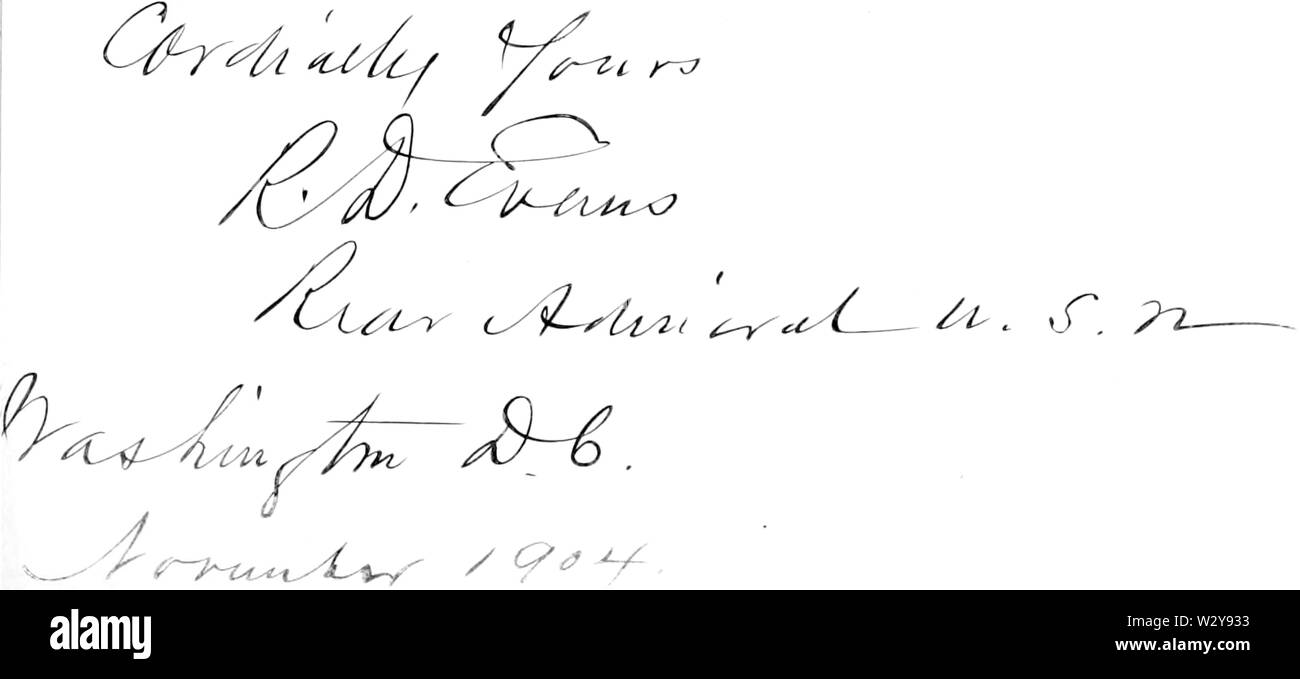 Cordially Yours
R. D. Evans
Rear Admiral U. S. N
Washington D.C.
November 1904.
alamy
Image ID: W2Y933
www.alamy.com